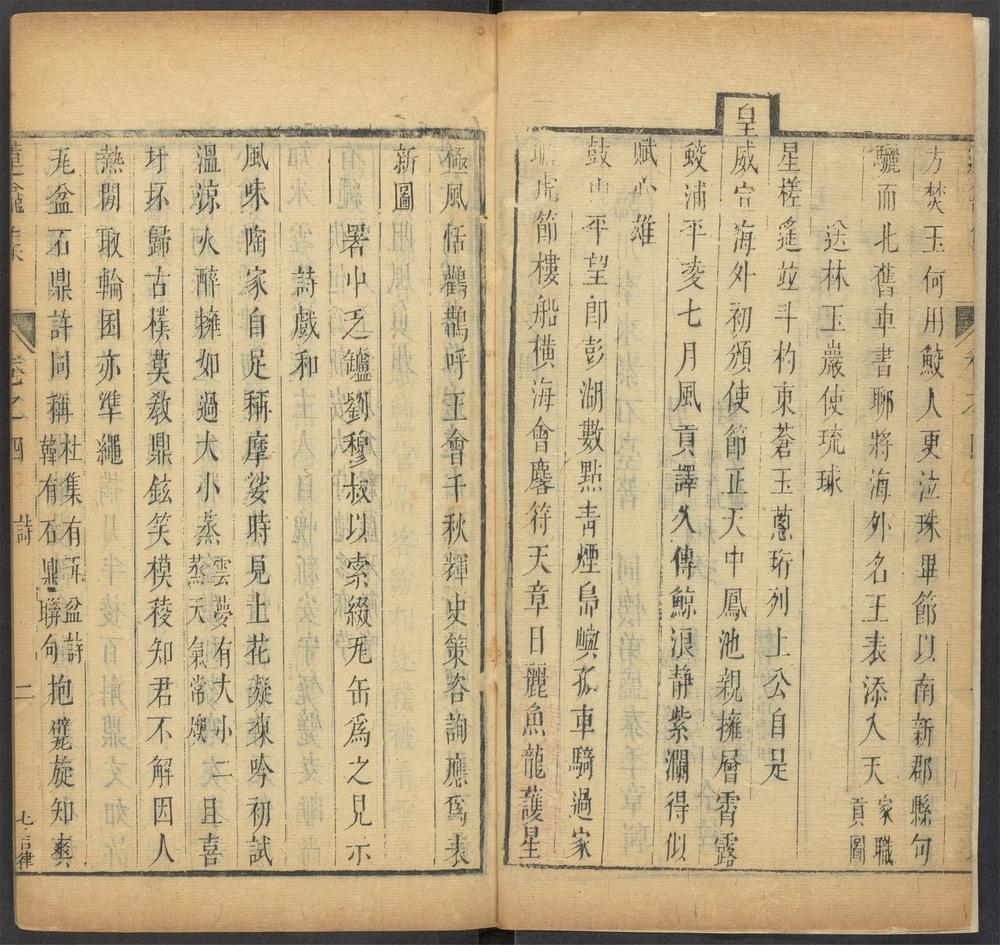 方焚玉何用鮫人更泣珠畢節以南新郡縣句
驪而北舊車書聊將海外名王表添入天家職貢圖
送林玉巖使琉球
星槎遥並斗杓東蒼玉蔥珩列上公自是
皇
威宣海外初頒使節正天中鳳池親擁層霄露
鮫浦平凌七月風貢譯久傳鯨浪靜紫瀾得似
賦心雄
鼓山平望卽彭湖數點青煙島嶼孤車騎過家
瞻虎節樓船橫海會麐符天章日麗魚龍護星
極風恬鸛鵲呼王會千秋輝史策咨詢應爲表
新圖
署中乏罏劉穆叔以索綴瓦缶爲之見示
詩戲和
風味陶家自足稱摩挲時見土花凝煉吟初試
溫涼火醉擁如過大小蒸雲夢有大小二蒸天氣常燠且喜
圩坏歸古樸莫敎鼎鉉笑模稜知君不解因人
熱閒敢輪囷亦準繩
瓦盆石鼎許同稱杜集有瓦盆詩韓有石鼎聯句抱甕旋知爽
卷之四
詩
二
七言律